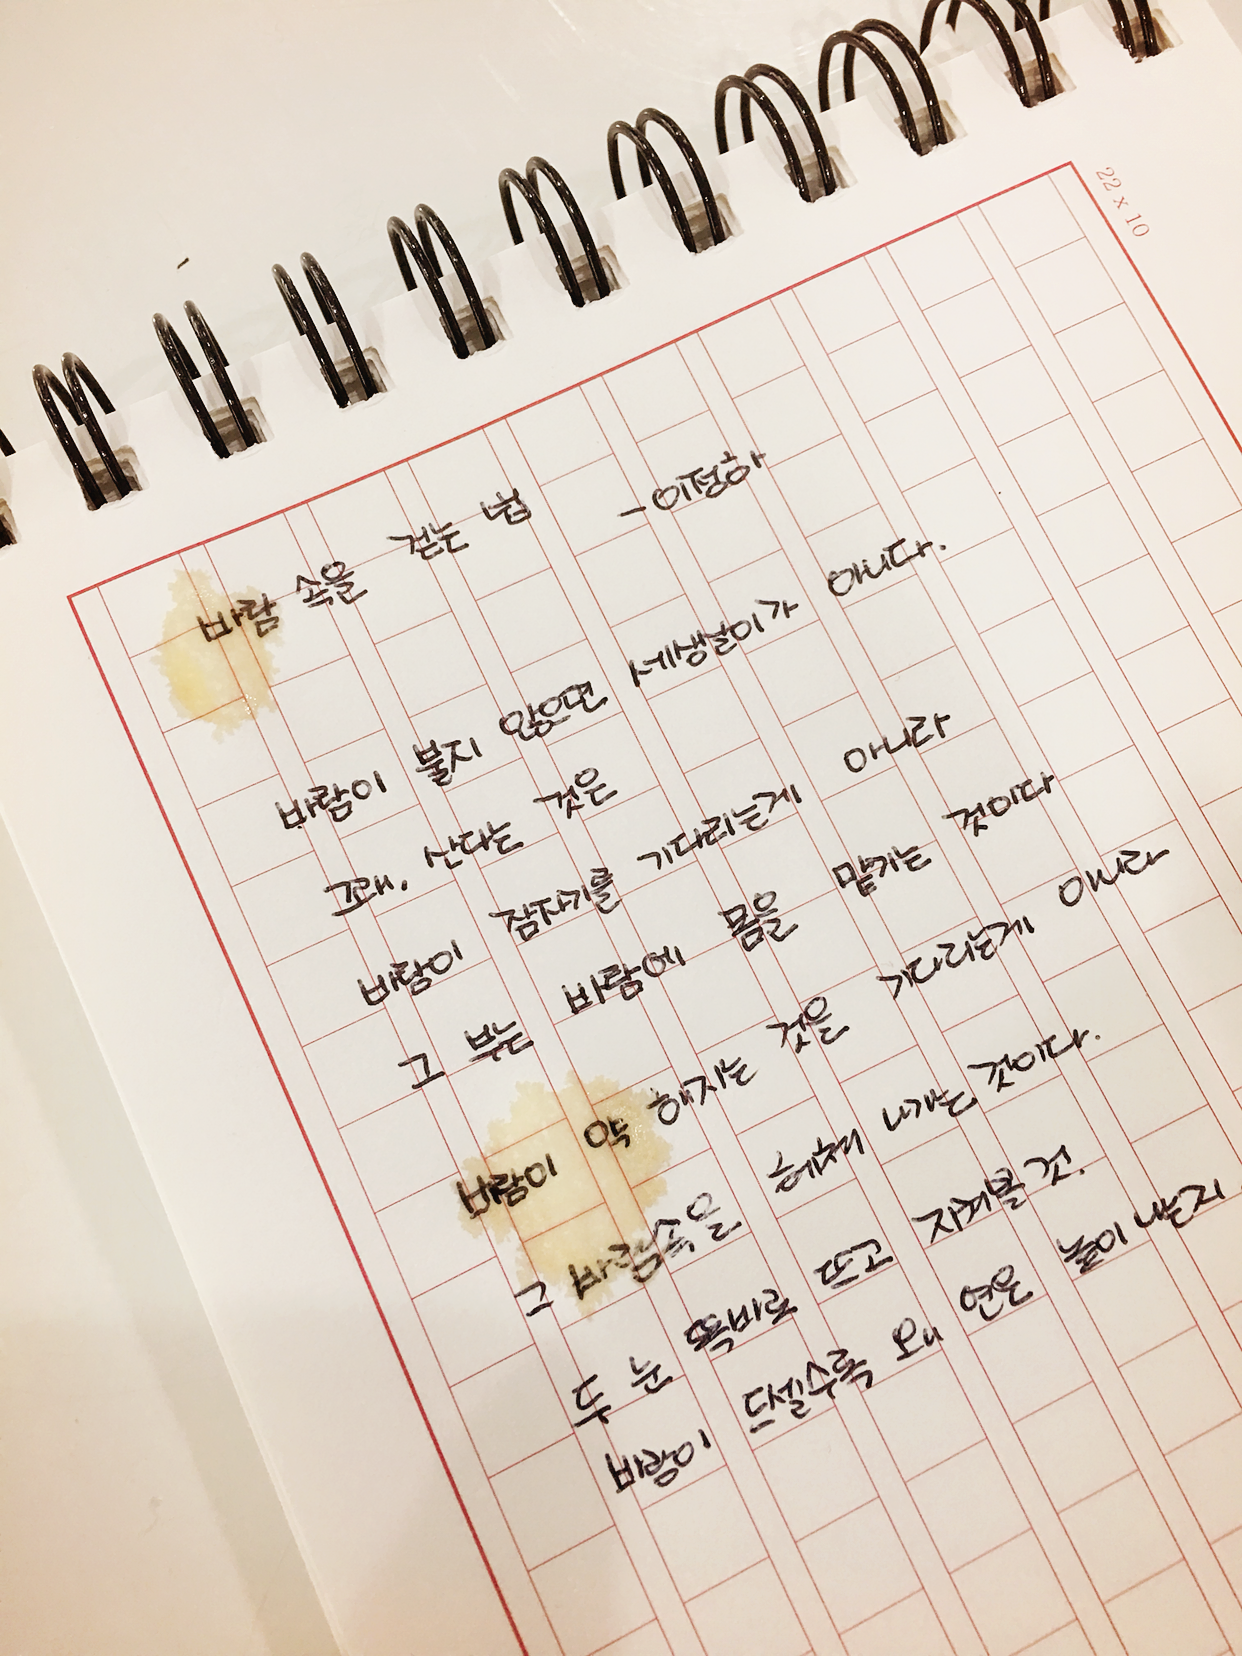 22 x 10
바람 속을 걷는 법 - 이정하
바람이 불지 않으면 세상살이가 아니다.
그래, 산다는 것은
바람이 잠자기를 기다리는게 아니라
그 부는 바람에 몸을 맡기는 것이다
바람이 약해지는 것을 기다리는게 아니라
그 바람속을 헤쳐 나가는 것이다.
두 눈 똑바로 뜨고 지켜볼 것.
바람이 드셀수록 왜 연은 높이 나는지.